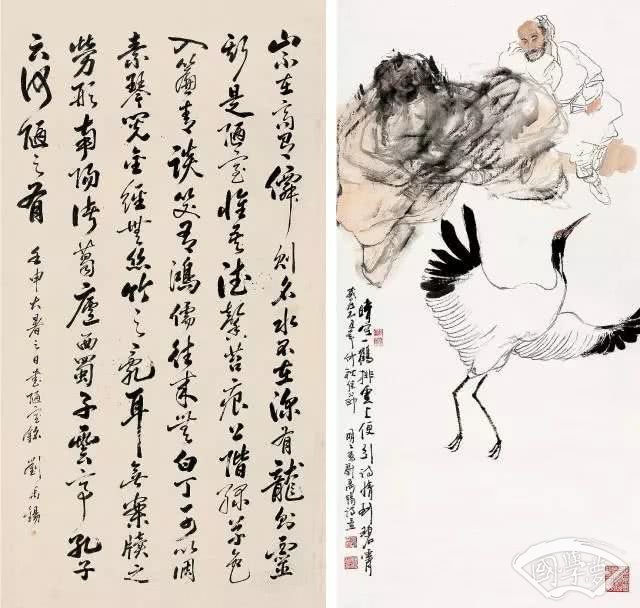 山不在高有僊則名水不在深有龍則靈
斯是陋室惟吾德馨苔痕上階綠草色
入簾青談笑有鴻儒往來無白丁可以調
素琴閱金經無絲竹之亂耳無案牘之
勞形南陽諸葛廬西蜀子雲亭孔子
云何陋之有
壬申大暑之日書陋室銘 劉禹錫
晴空一鶴排雲上便引詩情到碧霄
寫劉禹錫詩意
國學夢